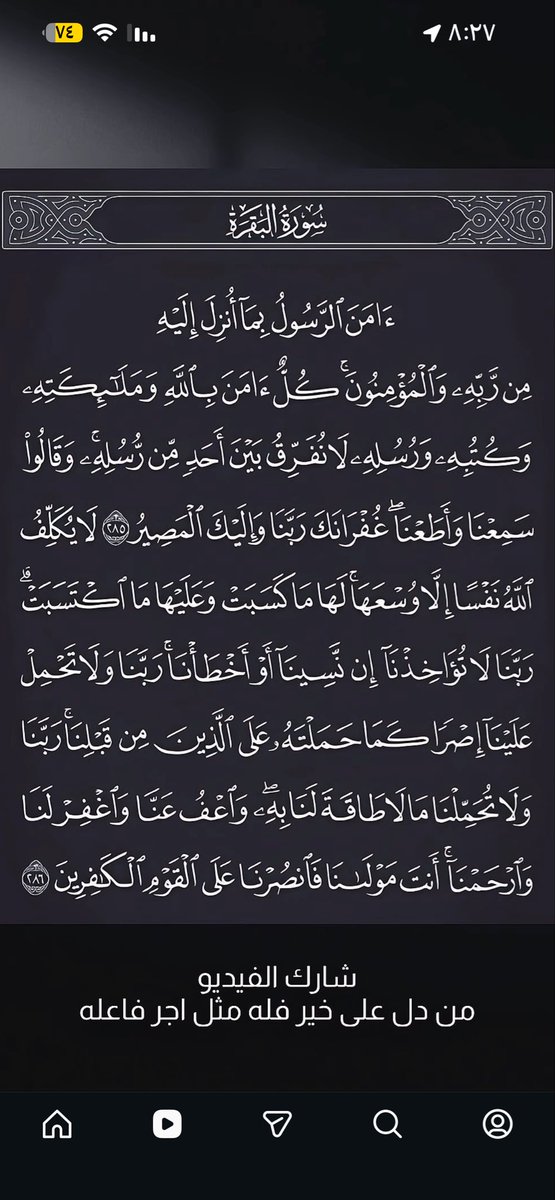 ٧٤
٨:٢٧
سُورَةُ البَقَرَةِ
ءَامَنَ ٱلرَّسُولُ بِمَآ أُنزِلَ إِلَيْهِ
مِن رَّبِّهِۦ وَٱلْمُؤْمِنُونَۚ كُلٌّ ءَامَنَ بِٱللَّهِ وَمَلَٰٓئِكَتِهِۦ
وَكُتُبِهِۦ وَرُسُلِهِۦ لَا نُفَرِّقُ بَيْنَ أَحَدٍ مِّن رُّسُلِهِۦۚ وَقَالُوا۟
سَمِعْنَا وَأَطَعْنَاۖ غُفْرَانَكَ رَبَّنَا وَإِلَيْكَ ٱلْمَصِيرُ ٢٨٥ لَا يُكَلِّفُ
ٱللَّهُ نَفْسًا إِلَّا وُسْعَهَاۚ لَهَا مَا كَسَبَتْ وَعَلَيْهَا مَا ٱكْتَسَبَتْۗ
رَبَّنَا لَا تُؤَاخِذْنَآ إِن نَّسِينَآ أَوْ أَخْطَأْنَاۚ رَبَّنَا وَلَا تَحْمِلْ
عَلَيْنَآ إِصْرًا كَمَا حَمَلْتَهُۥ عَلَى ٱلَّذِينَ مِن قَبْلِنَاۚ رَبَّنَا
وَلَا تُحَمِّلْنَا مَا لَا طَاقَةَ لَنَا بِهِۦۖ وَٱعْفُ عَنَّا وَٱغْفِرْ لَنَا
وَٱرْحَمْنَآۚ أَنتَ مَوْلَىٰنَا فَٱنصُرْنَا عَلَى ٱلْقَوْمِ ٱلْكَٰفِرِينَ ٢٨٦
شارك الفيديو
من دل على خير فله مثل اجر فاعله